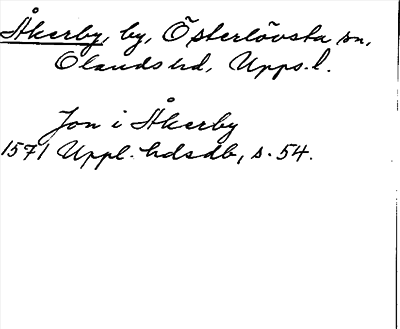 Åkerby, by, Österlövsta sn,
Olands hd, Upps. l.
Jon i Åkerby
1571 Uppl. hdsdb, s. 54.